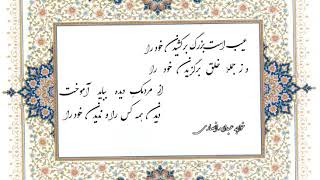 عیب است بزرگ برکشیدن خود را
و ز جمله خلق برگزیدن خود را
از مردمک دیده بباید آموخت
دیدن همه کس را و ندیدن خود را
خواجه عبدالله انصاری